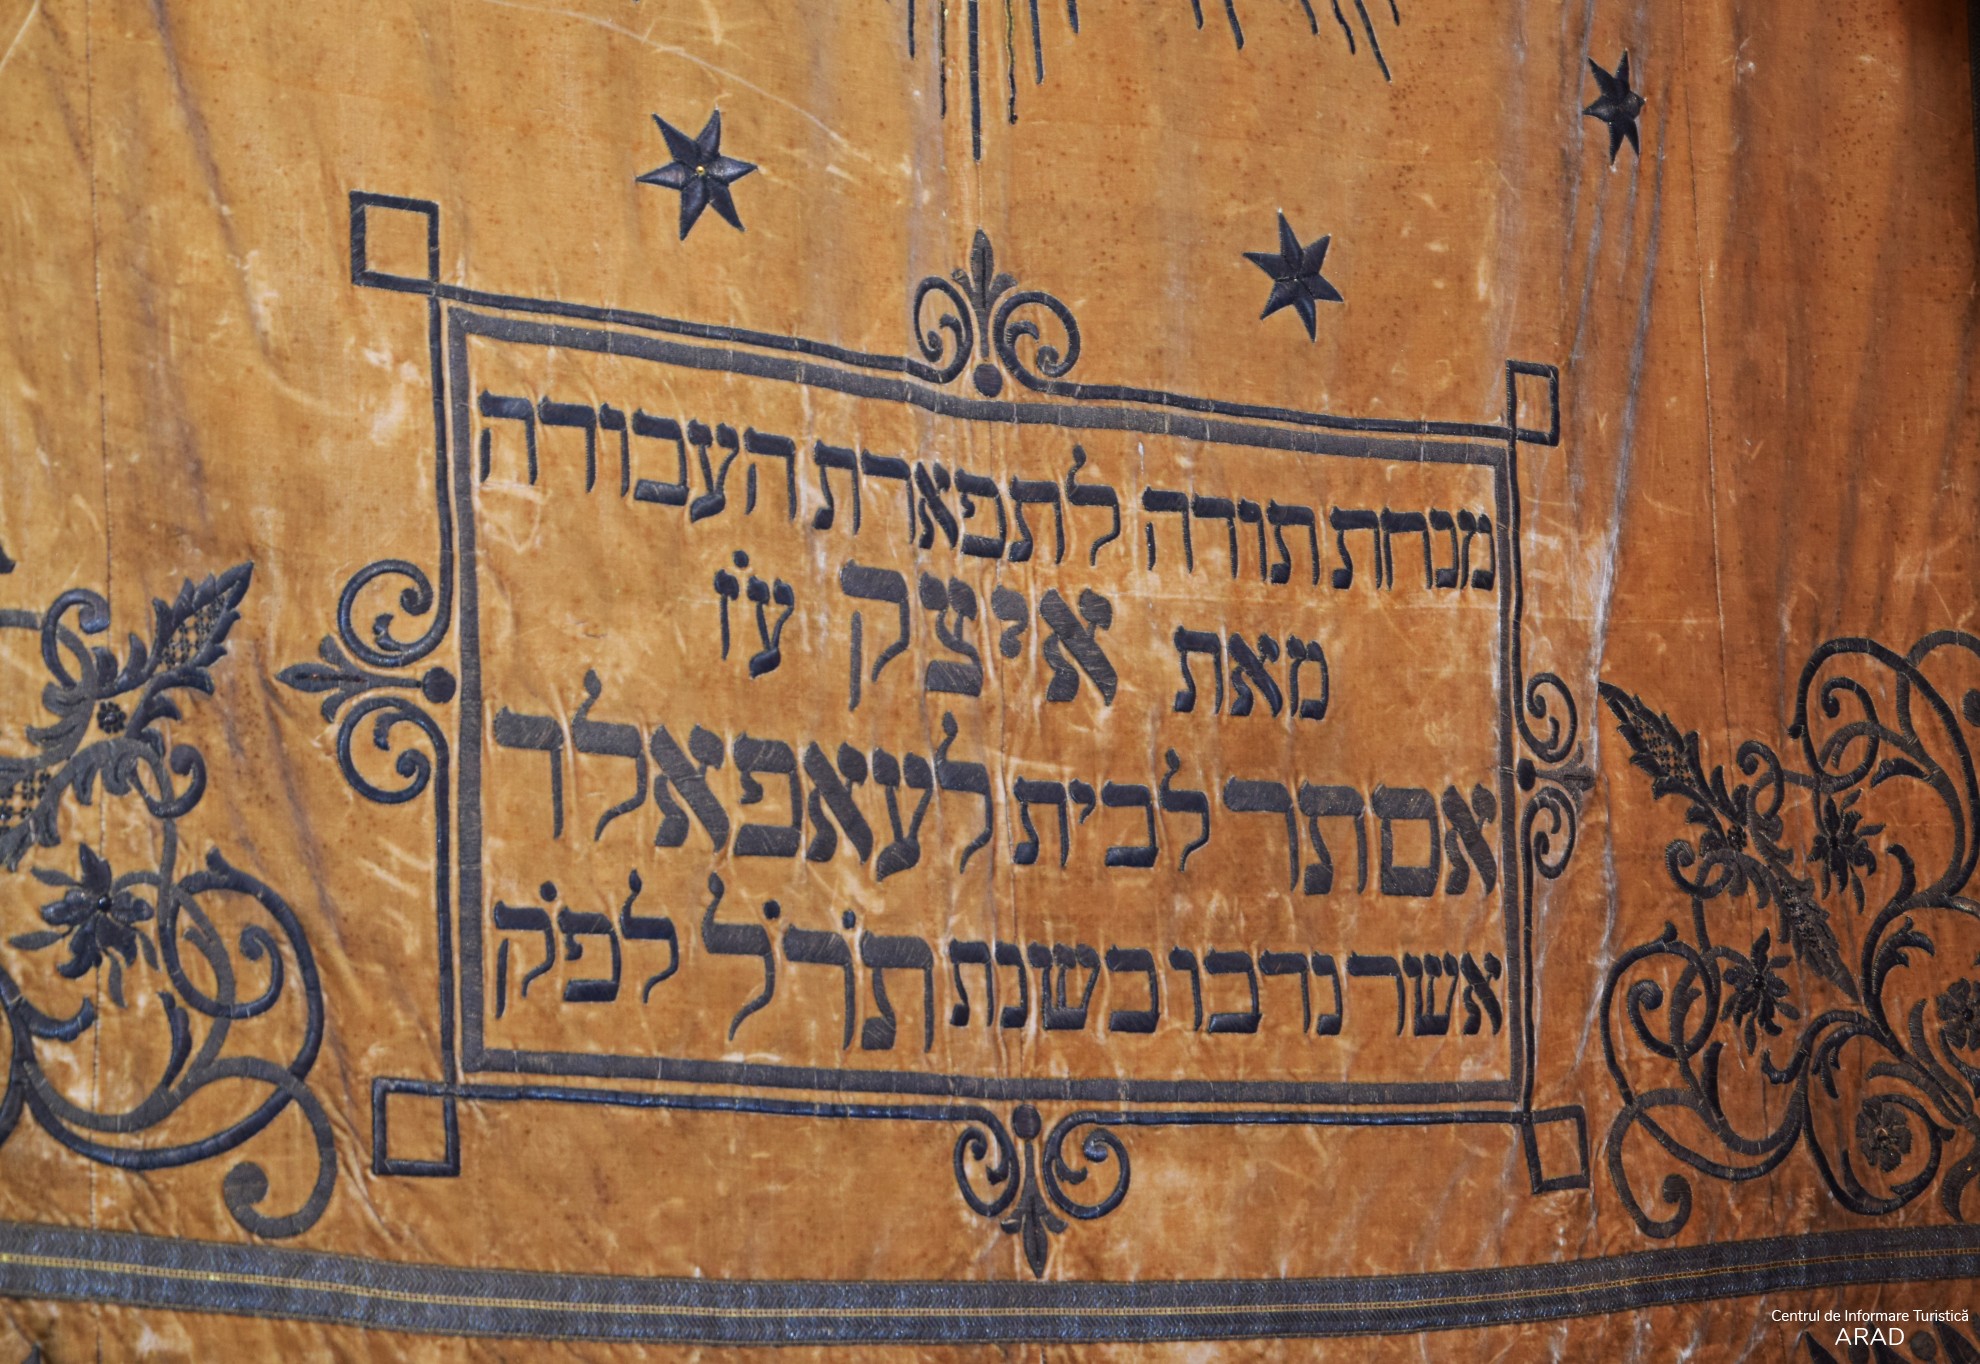 מנחת תודה לתפארת העבודה
מאת איצק ע״ז
אסתר לבית לעאפאלד
אשר נדבו בשנת תר״ל לפ״ק
Centrul de Informare Turistică
ARAD